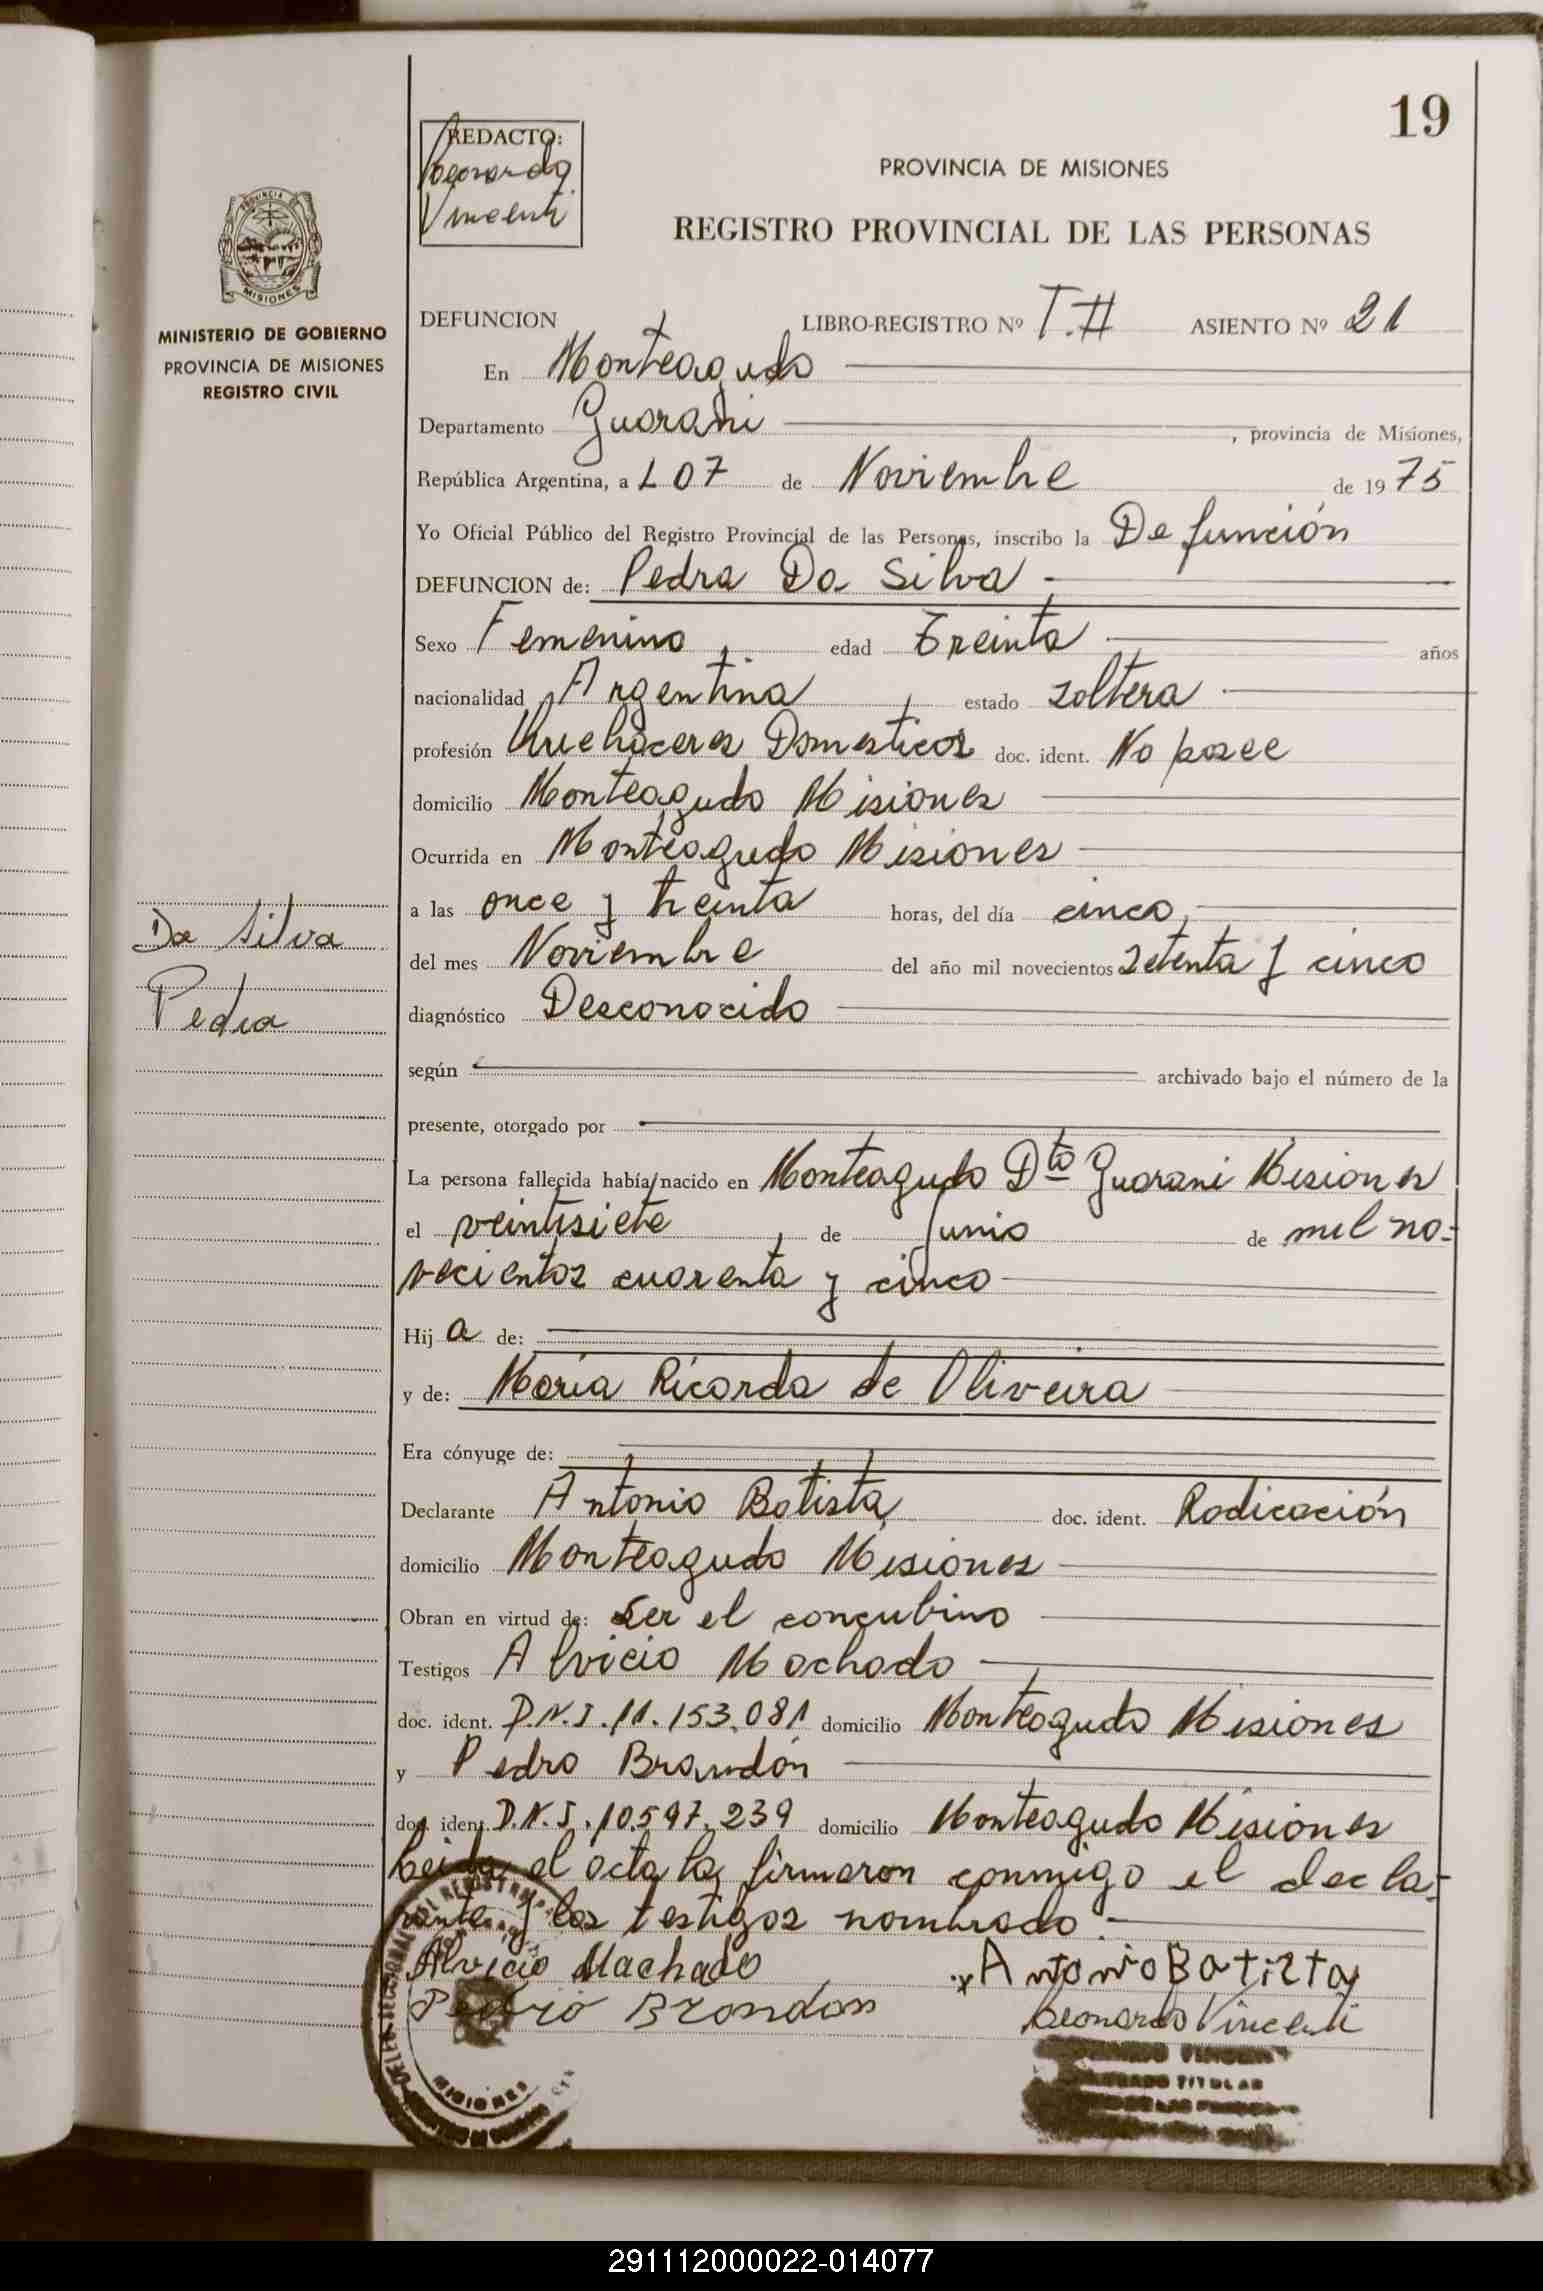 19
REDACTO:
Leonardo
Vincenti
PROVINCIA DE MISIONES
REGISTRO PROVINCIAL DE LAS PERSONAS
PROVINCIA DE
MISIONES
MINISTERIO DE GOBIERNO
PROVINCIA DE MISIONES
REGISTRO CIVIL
DEFUNCION LIBRO-REGISTRO Nº T.II ASIENTO Nº 21
En Monteagudo
Departamento Guarani , provincia de Misiones,
República Argentina, a L 07 de Noviembre de 1975
Yo Oficial Público del Registro Provincial de las Personas, inscribo la Defunción
DEFUNCION de: Pedra Da Silva
Sexo Femenino, edad Treinta años
nacionalidad Argentina estado soltera
profesión Quehaceres Domesticos doc. ident. No posee
domicilio Monteagudo Misiones
Ocurrida en Monteagudo Misiones
a las once y treinta horas, del día cinco,
Da Silva
Pedra
del mes Noviembre del año mil novecientos setenta y cinco
diagnóstico Desconocido
según archivado bajo el número de la
presente, otorgado por
La persona fallecida había nacido en Monteagudo Dto Guarani Misiones
el veintisiete de Junio de mil no-
vecientos cuarenta y cinco
Hija de:
y de: María Ricarda de Oliveira
Era cónyuge de:
Declarante Antonio Batista doc. ident. Radicación
domicilio Monteagudo Misiones
Obran en virtud de: ser el concubino
Testigos Alvicio Machado
doc. ident. D.N.I. 11.153.081 domicilio Monteagudo Misiones
y Pedro Brandón
doc. ident. D.N.I. 10.597.239 domicilio Monteagudo Misiones
Leida el acta la firmaron conmigo el decla-
rante y los testigos nombrado
Alvicio Machado Antonio Batista
Pedrio Brondon Leonardo Vincenti
MISIONES
TITULAR
291112000022-014077